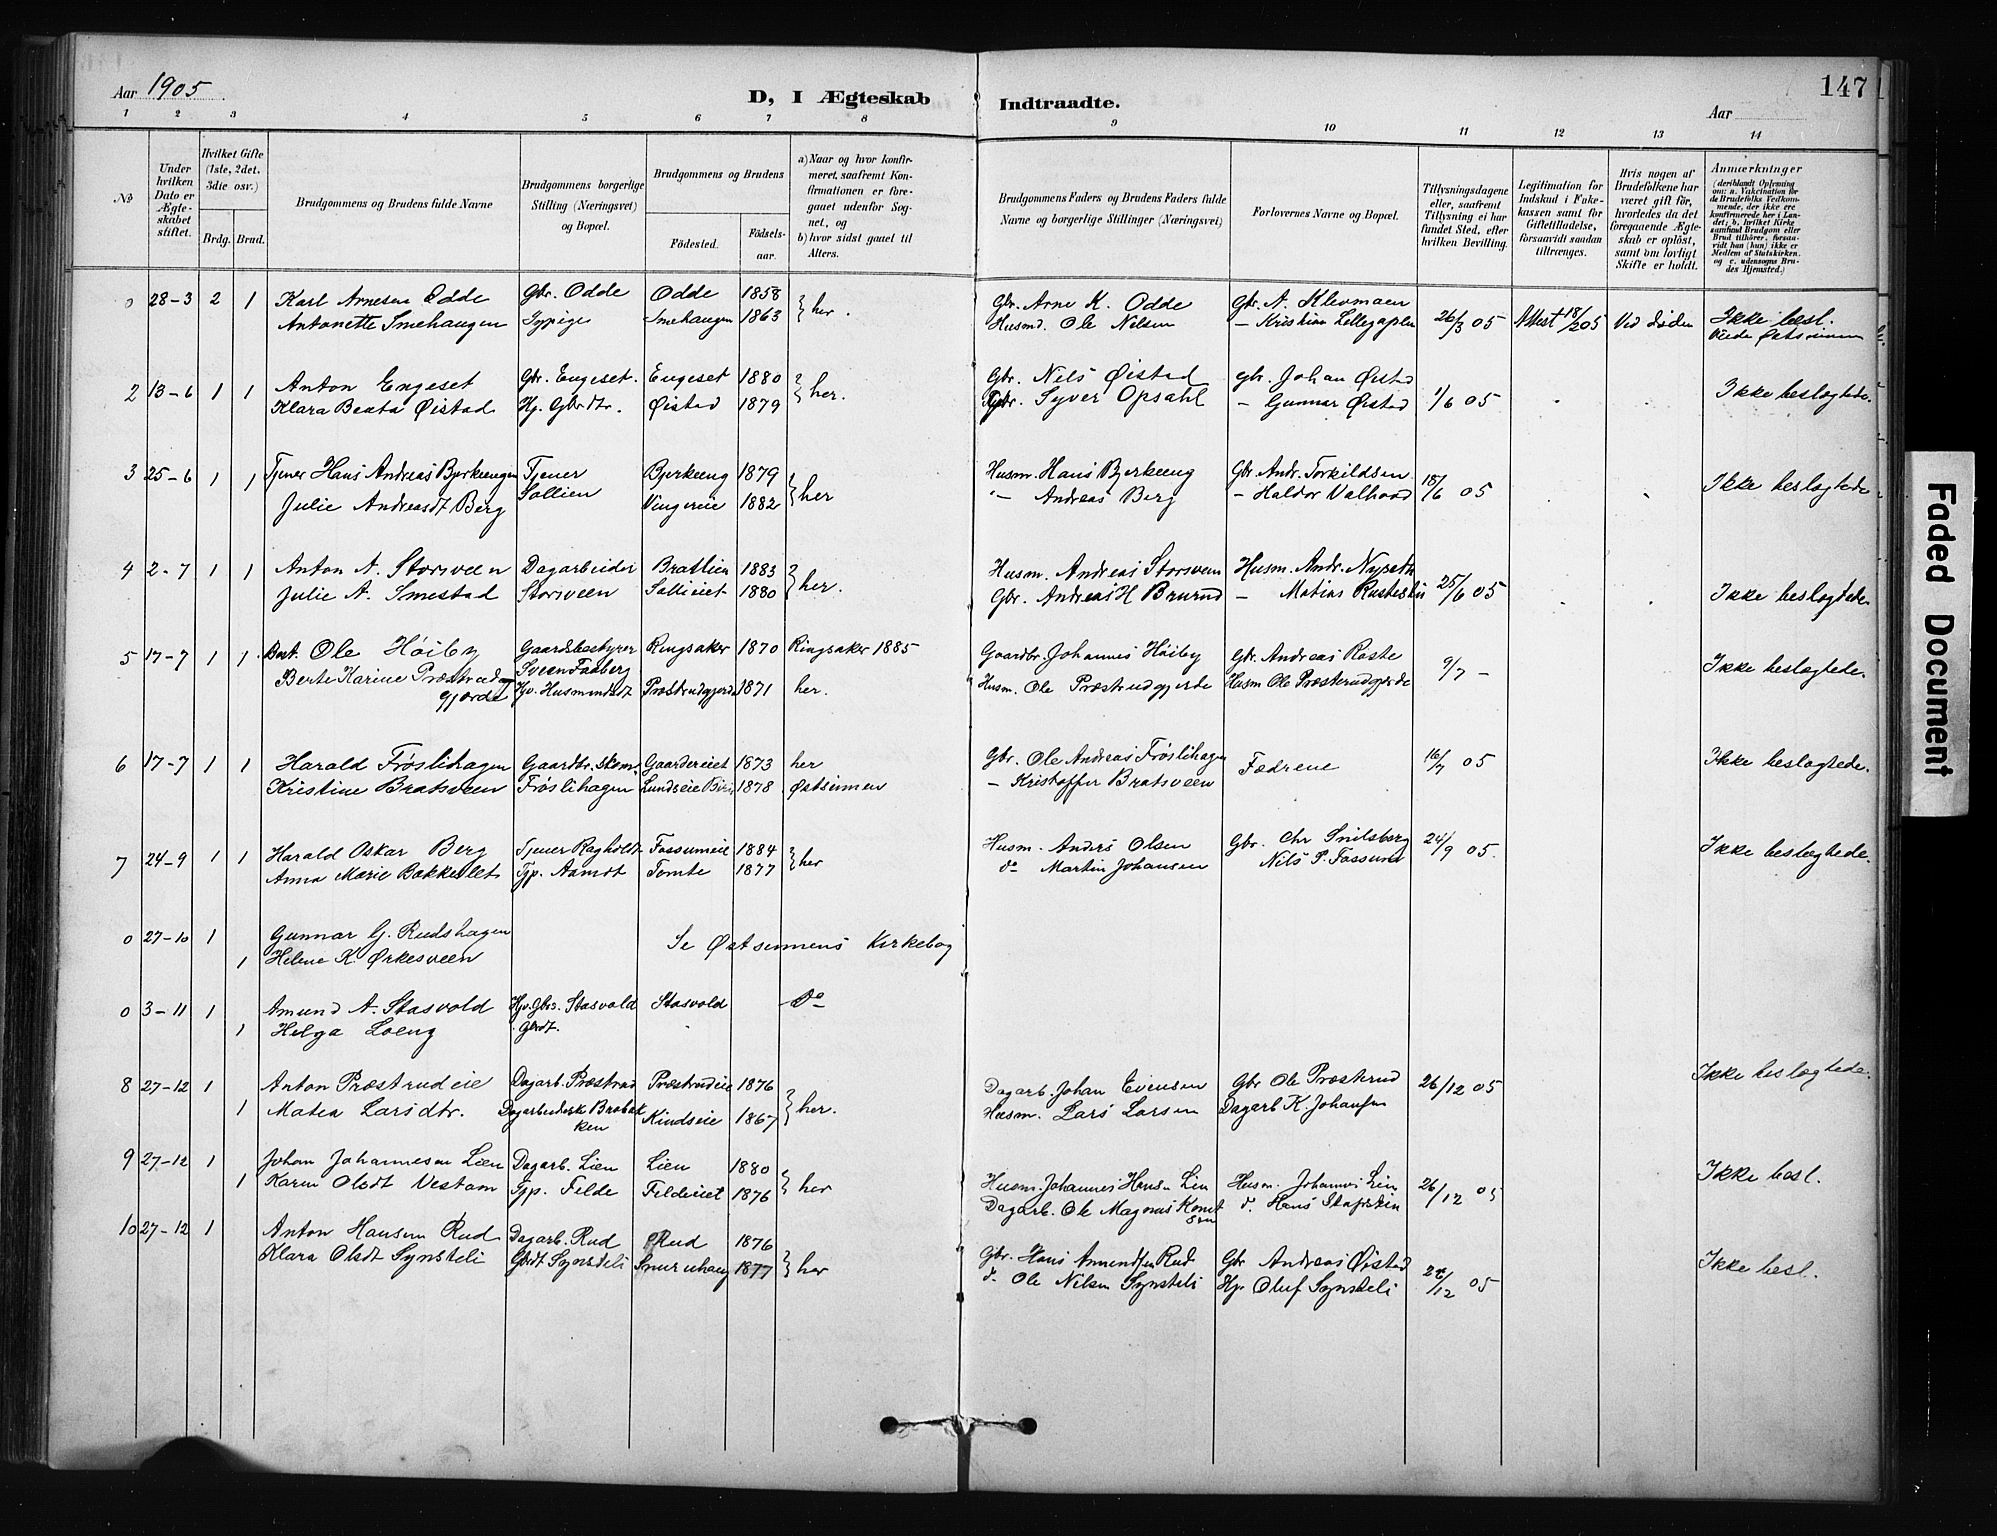 Aar 1905
D, I Ægteskab Indtraadte.
Aar
147
1 2 3 4 5 6 7 8 9 10 11 12 13 14
No
Under hvilken Dato er Ægteskabet stiftet.
Hvilket Gifte (1ste, 2det, 3die osv.)
Brdg. Brud.
Brudgommens og Brudens fulde Navne
Brudgommens borgerlige Stilling (Næringsvei) og Bopæl.
Brudgommens og Brudens
Födested. Födsels-aar.
a) Naar og hvor konfirmeret, saafremt Konfirmationen er foregaaet udenfor Sognet, og
b) hvor sidst gaaet til Alters.
Brudgommens Faders og Brudens Faders fulde Navne og borgerlige Stillinger (Næringsvei)
Forlovernes Navne og Bopæl.
Tillysningsdagene eller, saafremt Tillysning ei har fundet Sted, efter hvilken Bevilling.
Legitimation for Indskud i Enkekassen samt for Giftetilladelse, forsaavidt saadan tiltrænges.
Hvis nogen af Brudefolkene har været gift för, hvorledes da det foregaaende Ægteskab er oplöst, samt om lovligt Skifte er holdt.
Anmærkninger
(deriblandt Oplysning om: a. Vakcination för de Brudefolks Vedkommende, der ikke ere konfirmerede her i Landet; b. hvilket Kirkesamfund Brudgom eller Brud tilhörer, forsaavidt han (hun) ikke er Medlem af Statskirken, og c. udensogns Brudes Hjemsted.)
0 28-3 2 1 Karl Arnesen Odde Gbr. Odde Odde 1858 } her. Gbr. Arne K. Odde Gbr. A. Klevmoen
Antonette Smehaugen Tjpige Smehaugen 1863 Husmd. Ole Nilsen - Kristian Lillegaplen 26/3 05 Attest 18/2 05 Ved Døden Ikke besl.
2 13-6 1 1 Anton Engeset Gbr. Engeset. Engeset 1880 } her. Gbr. Nils Øistad Gbr. Johan Øistad
Klara Beata Øistad Hj. Gbrdtr. Øistad 1879 Gbr. Syver Opsahl - Gunnar Øistad 1/6 05 Ikke beslægtede.
3 25-6 1 1 Tjener Hans Andreas Byrkeengen Tjener Bjerkeeng 1879 } her Husm. Hans Bjerkeeng Gbr. Andr. Torkildsen
Julie Andreasdt Berg Sollien Vingereie 1882 "- Andreas Berg - Haldor Valhovd 18/6 05 Ikke beslægtede
4 2-7 1 1 Anton A. Storsveen Dagarbeider Bratlien 1883 } her. Husm. Andreas Storsveen Husm. Andr. Nyseth
Julie A. Smestad Storsveen Sollieiet 1880 Gbr. Andreas H Brurud - Matias Rustestu 25/6 05 Ikke beslægtede
5 17-7 1 1 Best. Ole Høiby Gaardsbestyrer Sveen Faaberg Ringsaker 1870 Ringsaker 1885 Gaardbr. Johannes Høiby Gbr. Andreas Roste
Berte Karine Præstrudgjorde Hjv. Husmandsdt Præstrudgjorde 1871 her. Husm. Ole Præstrudgjerde Husm Ole Præsterudgjerde 9/7 - Ikke beslægtede
6 17-7 1 1 Harald Frøslihagen Gaardbr. skom. Gaardereiet 1873 her Gbr. Ole Andreas Frøslihagen Fædrene 16/7 05 Ikke beslægtede.
Kristine Bratsveen Frøslihagen Lundseie Biri 1878 Østsinnen - Kristoffer Bratsveen
7 24-9 1 1 Harald Oskar Berg Tjener Ragholdt Fossumeie 1884 } her Husm. Anders Olsen Gbr. Chr Snilsberg 24/9 05. Ikke beslægtede.
Anna Marie Bakkeslet Tjp. Aamdt Tomte 1877 do Martin Johansen Nils P. Fossum
0 27-10 1 Gunnar G. Rudshagen Se Østsinnens Kirkebog
1 Helene K. Ørkesveen
0 3-11 1 Amund A. Stasvold Hjv. Gbrs. Stasvold Stasvold - do
1 Helga Loeng Gbrdt.
8 27-12 1 Anton Præstrudeie Dagarb. Præstrud Præstrudeie 1876 } her. Dagarb. Johan Evensen Gbr Ole Præsterud 26/12 05 Ikke beslægtede.
1 Matea Larsdtr. Dagarbeidersk Brobakken Kindseie 1867 Husm. Lars Larsen Dagarb K. Johansen
9 27-12 1 Johan Johannesen Lien Dagarb. Lien Lien 1880 } her Husm. Johannes Hans. Lien Husm. Johannes Lien 26/12 05 Ikke besl.
1 Karen Olsdt Vestom Tjp. Felde Feldeiet 1876 Dagarb. Ole Magnus
10 27-12 1 Anton Hansen Rud Dagarb. Rud Rud 1876 } her Gbr. Hans Amundsen Rud Gbr Andreas Øistad 05 Ikke besl.
Klara Olsdt Synsteli Gbrdt Synsteli Snuruhaug 1877 do Ole Nilsen Synsteli Hj. Oluf Synsteli
Faded Document